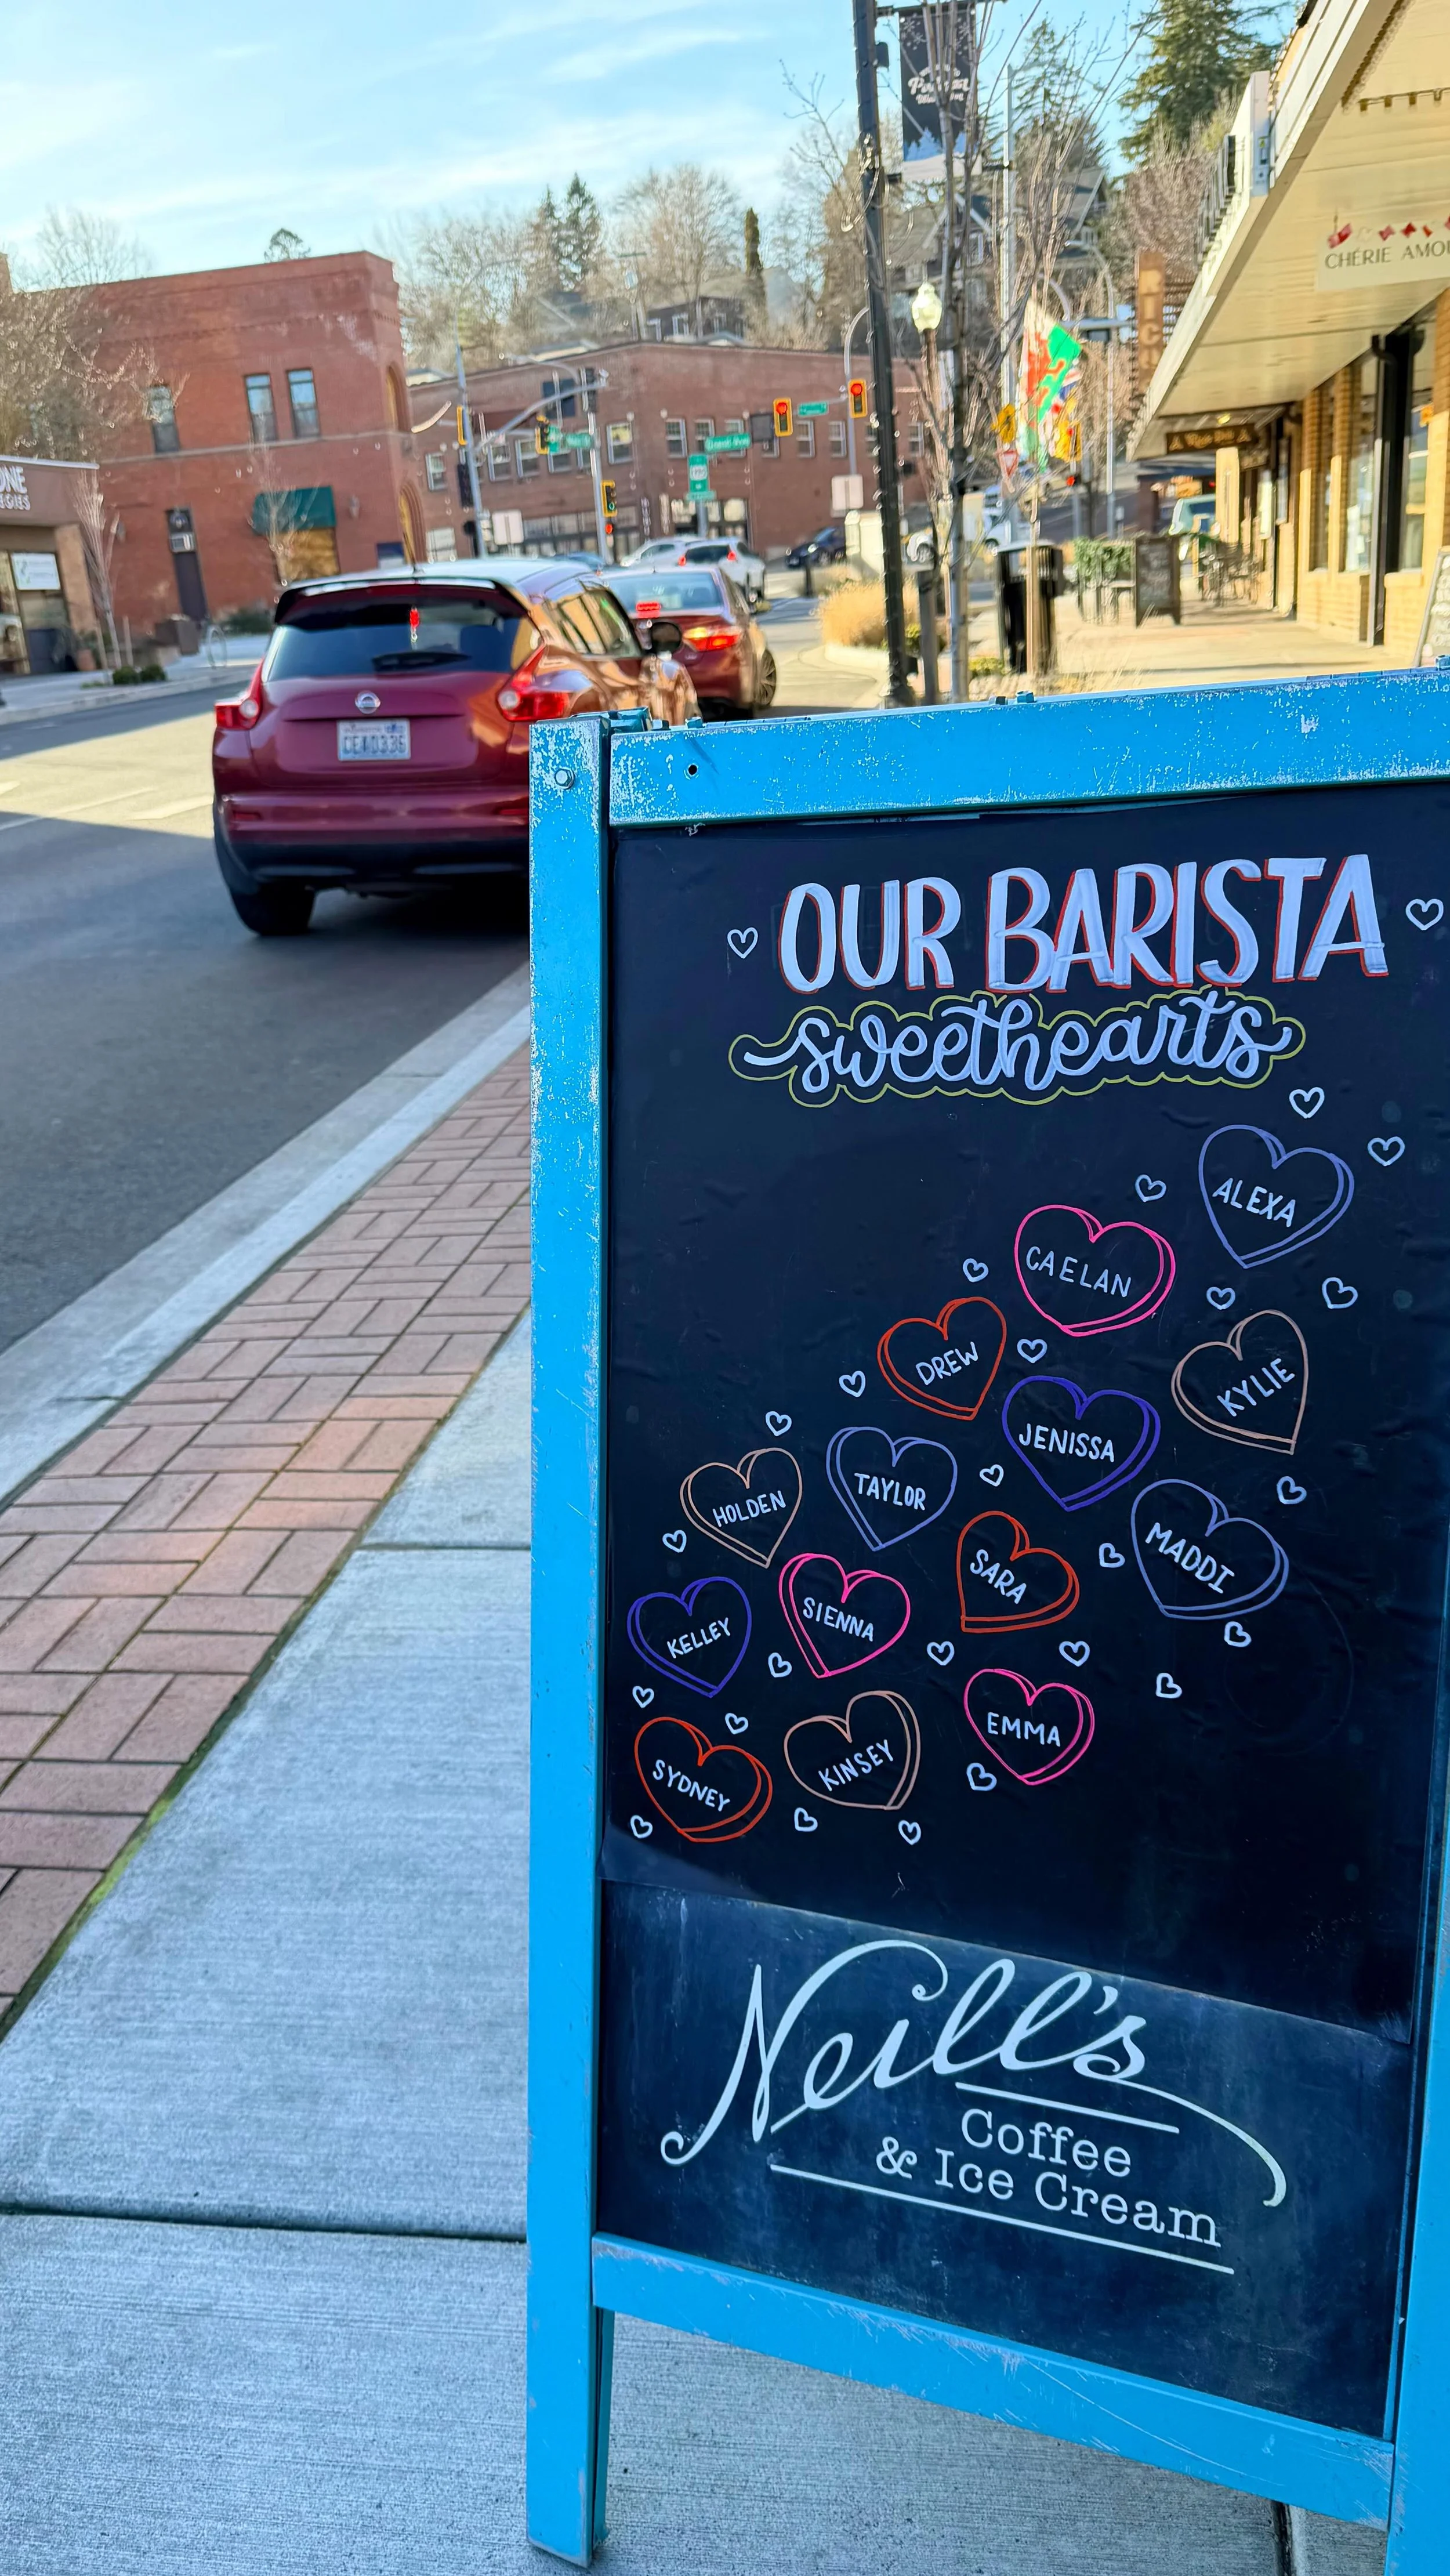 CHÉRIE AMOU
ONE
OUR BARISTA
sweethearts
ALEXA
CAELAN
DREW
KYLIE
JENISSA
HOLDEN
TAYLOR
SARA
MADDI
KELLEY
SIENNA
EMMA
SYDNEY
KINSEY
Neill's
Coffee
& Ice Cream